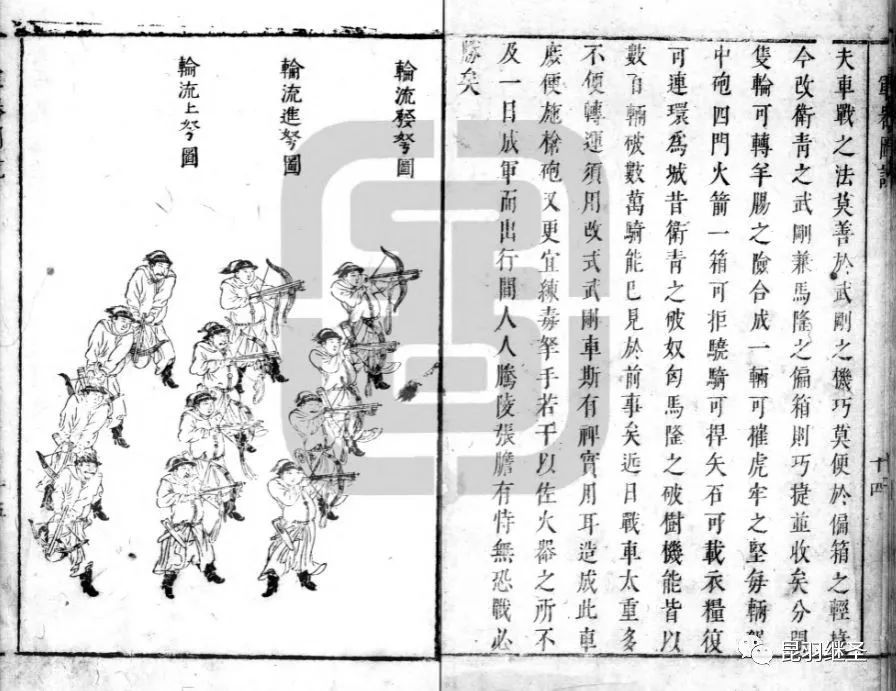 軍器圖說
十四
夫車戰之法莫善於武剛之機巧莫便於偏箱之輕捷
今改衛青之武剛兼馬隆之偏箱則巧捷並收矣分開
隻輪可轉羊腸之險合成一輛可摧虎牢之堅每輛
中砲四門火箭一箱可拒驍騎可捍矢石可載衣糧復
可連環爲城昔衛青之破奴匈馬隆之破樹機能皆以
數百輛破數萬騎能已見於前事矣近日戰車太重多
不便轉運須用改式武剛車斯有裨實用耳造成此車
庶便施槍砲又更宜練毒弩手若干以佐火器之所不
及一日成軍而出行間人人騰陵張膽有恃無恐戰必
勝矣
輪流發弩圖
輪流進弩圖
輪流上弩圖
昆羽继圣